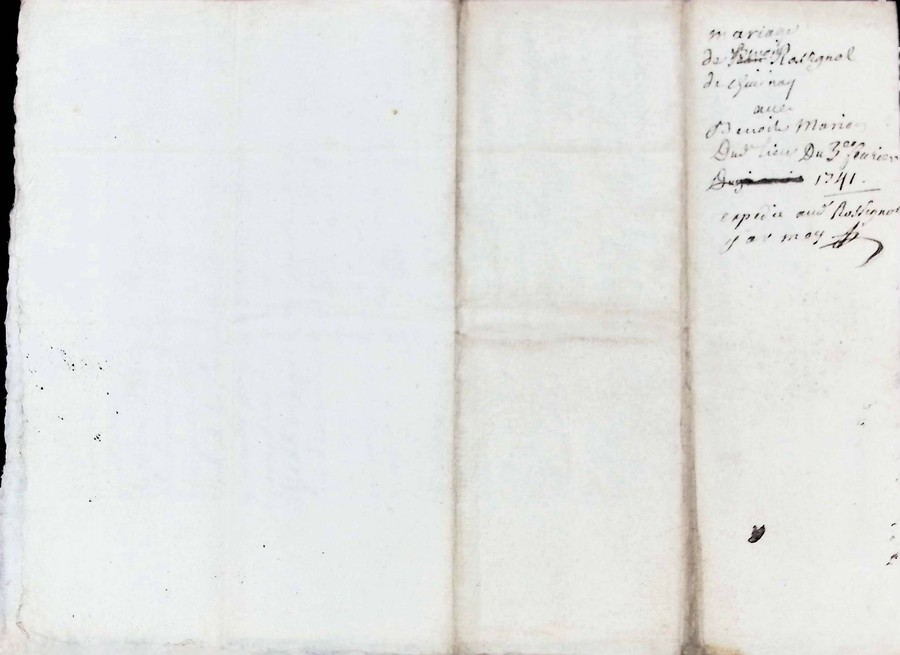 mariage
de Benoit Rossignol
de
avec
Benoite Marion
Dud. lieu Du 3e feurier
1741.
expedié aud. Rossignol
par moy